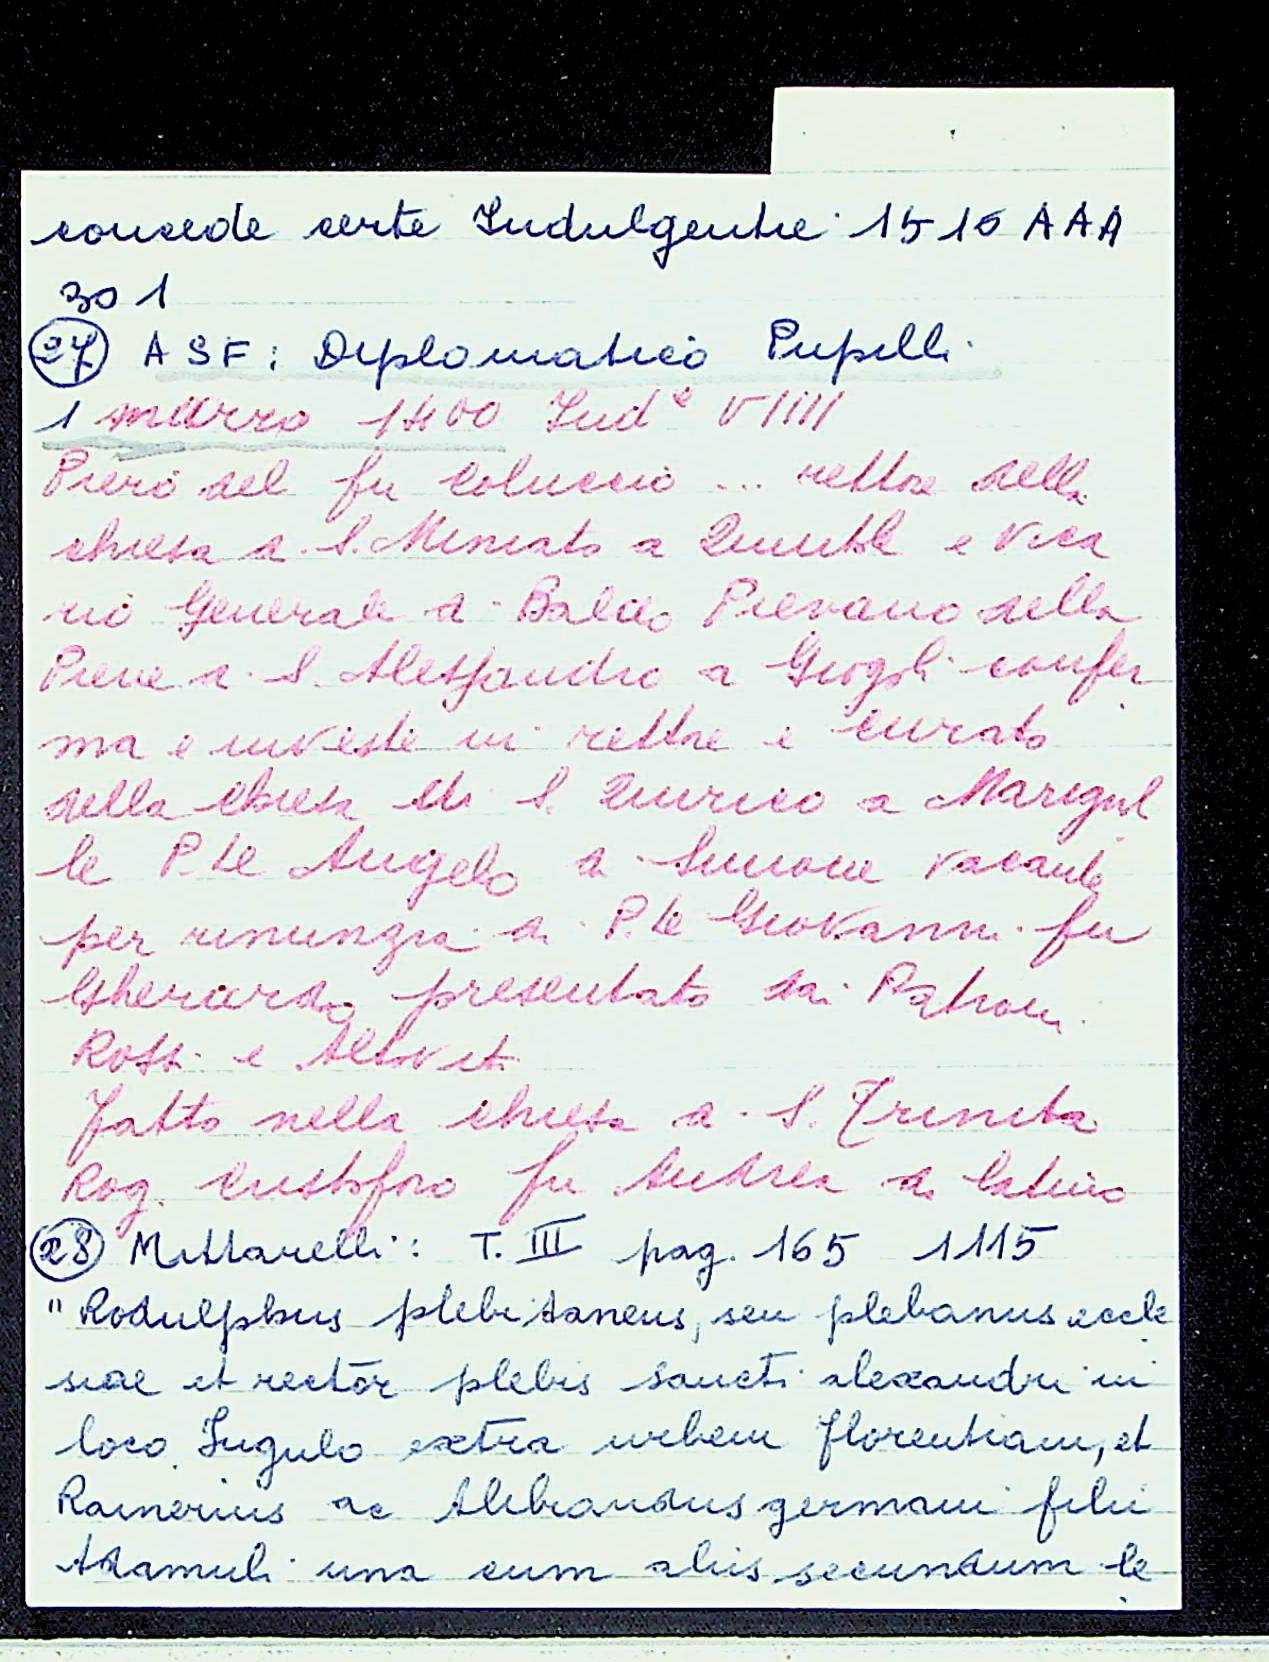 concede certe Indulgentie 1516 AAA
301
27 ASF: Diplomatico Pupilli
1 marzo 1400 Indᵉ VIIII
Piero del fu Coluccio ... rettore della
chiesa di S. Miniato a Quintole e Vica
rio Generale di Baldo Pievano della
Pieve di S. Alessandro a Giogoli confer
ma e investe in rettore e curato
della chiesa di S. Quirico a Marignol
le P.te Angelo di Simone vacante
per rinunzia di P.te Giovanni fu
Gherardo presentato dai Patroni
Rossi e Altoviti
Fatto nella chiesa di S. Trinita
Rog. Cristoforo fu Andrea da
28 Mittarelli: T. III pag. 165 1115
"Rodulphus plebitaneus, seu plebanus eccle
siae et rector plebis sancti alexandri in
loco Iugulo extra urbem florentiam, et
Rainerius ac Alibrandus germani filii
Adamuli una cum aliis secundum le